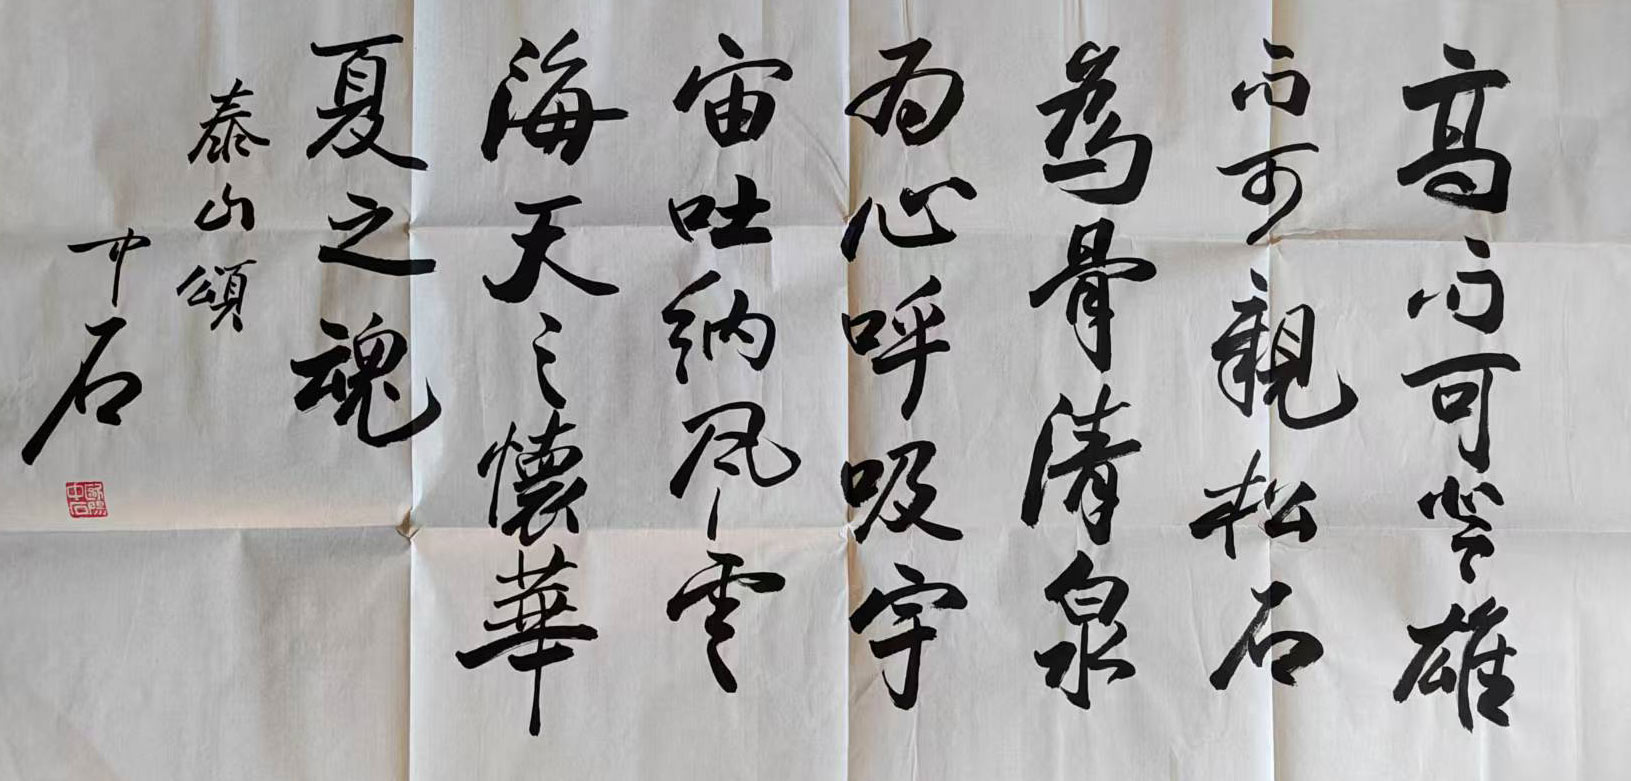 高而可登雄
而可親松石
為骨清泉
為心呼吸宇
宙吐納風雲
海天之懷華
夏之魂
泰山頌
中石
歐陽中石